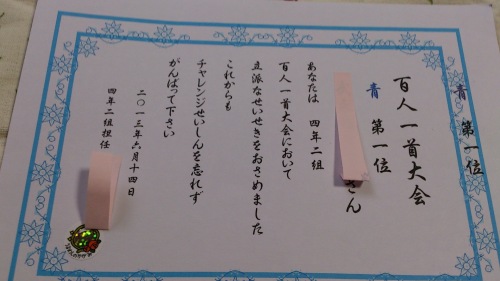 青 第一位
百人一首大会
青 第一位
さん
あなたは 四年二組
百人一首大会において
立派なせいせきをおさめました
これからも
チャレンジせいしんを忘れず
がんばって下さい
二〇一三年六月十四日
四年二組担任